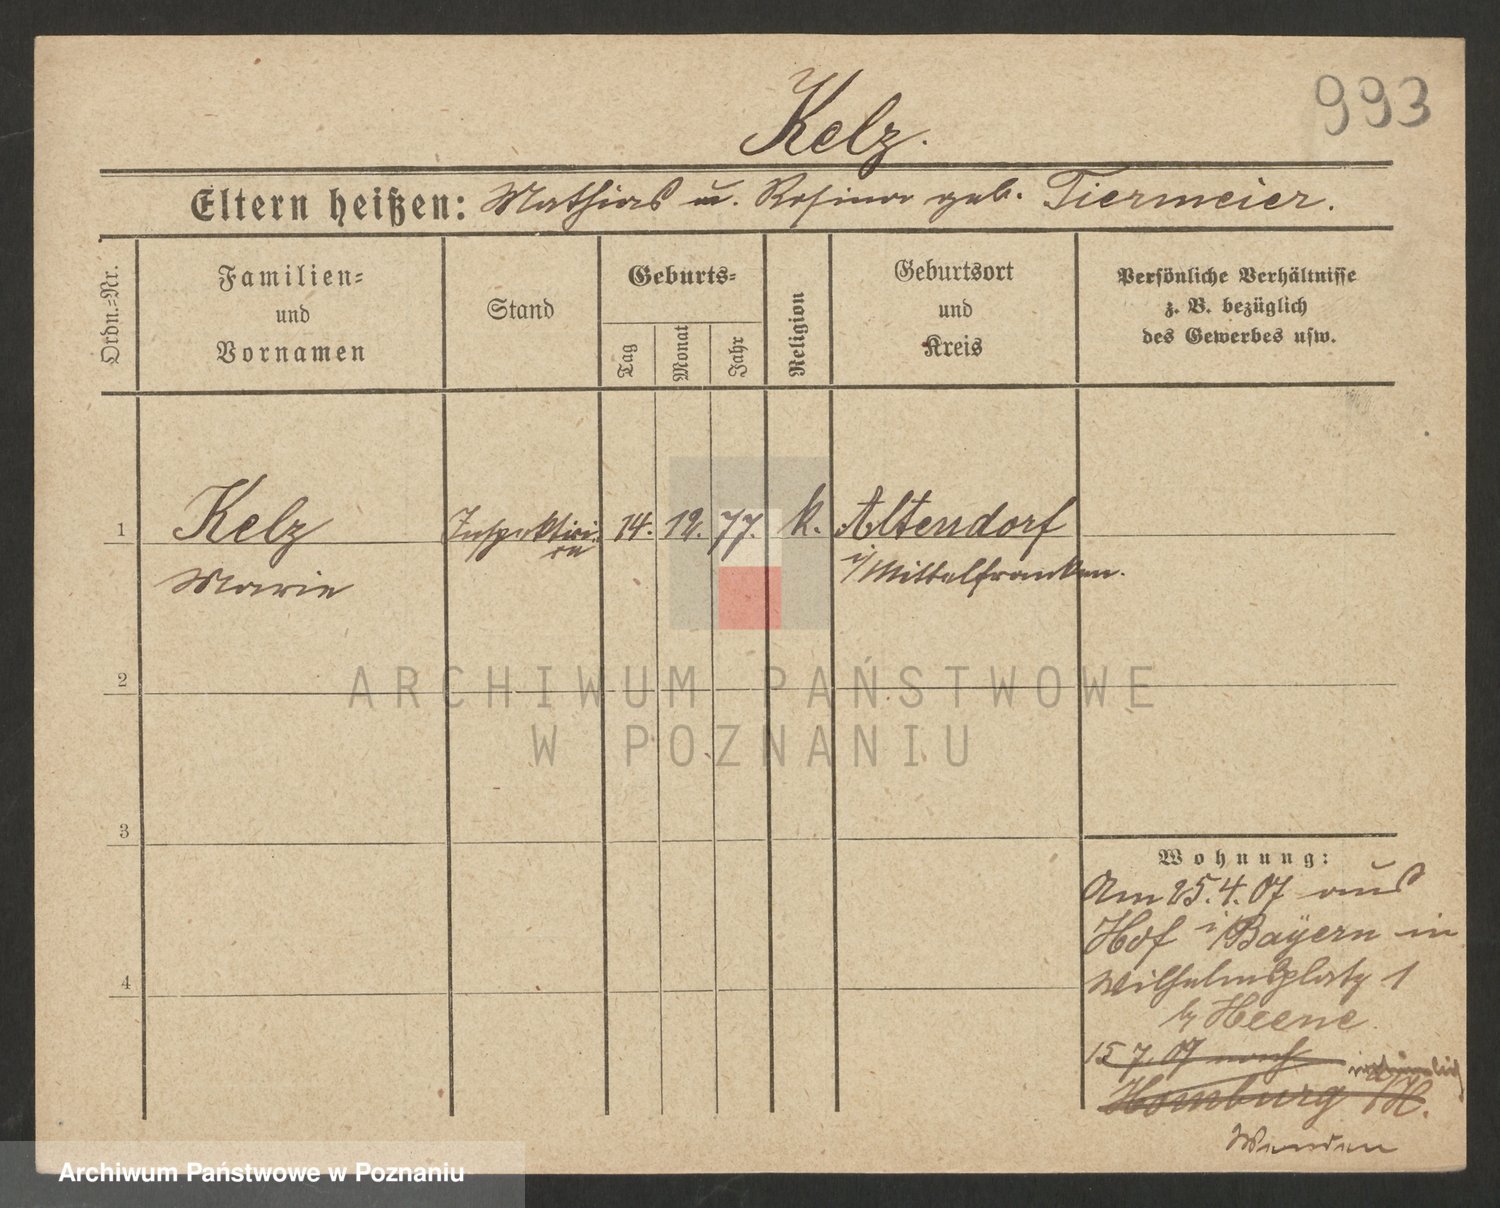 993
Kelz.
Eltern heißen: Mathias u. Rosina geb. Tiermeier.
Ordn.=Nr.
Familien=
und
Vornamen
Stand
Geburts=
Tag
Monat
Jahr
Religion
Geburtsort
und
Kreis
Persönliche Verhältnisse
z. B. bezüglich
des Gewerbes usw.
1 Kelz Inspektiri- 14. 12. 77. k. Altendorf
Marie i/Mittelfranken.
2
ARCHIWUM PAŃSTWOWE
W POZNANIU
3
4
Wohnung:
Am 25.4.07 aus
Hof i/Bayern in
Wilhelmsplatz 1
b/ Heene
15 7. 07 nach
Homburg /H.
Wenden
Archiwum Państwowe w Poznaniu